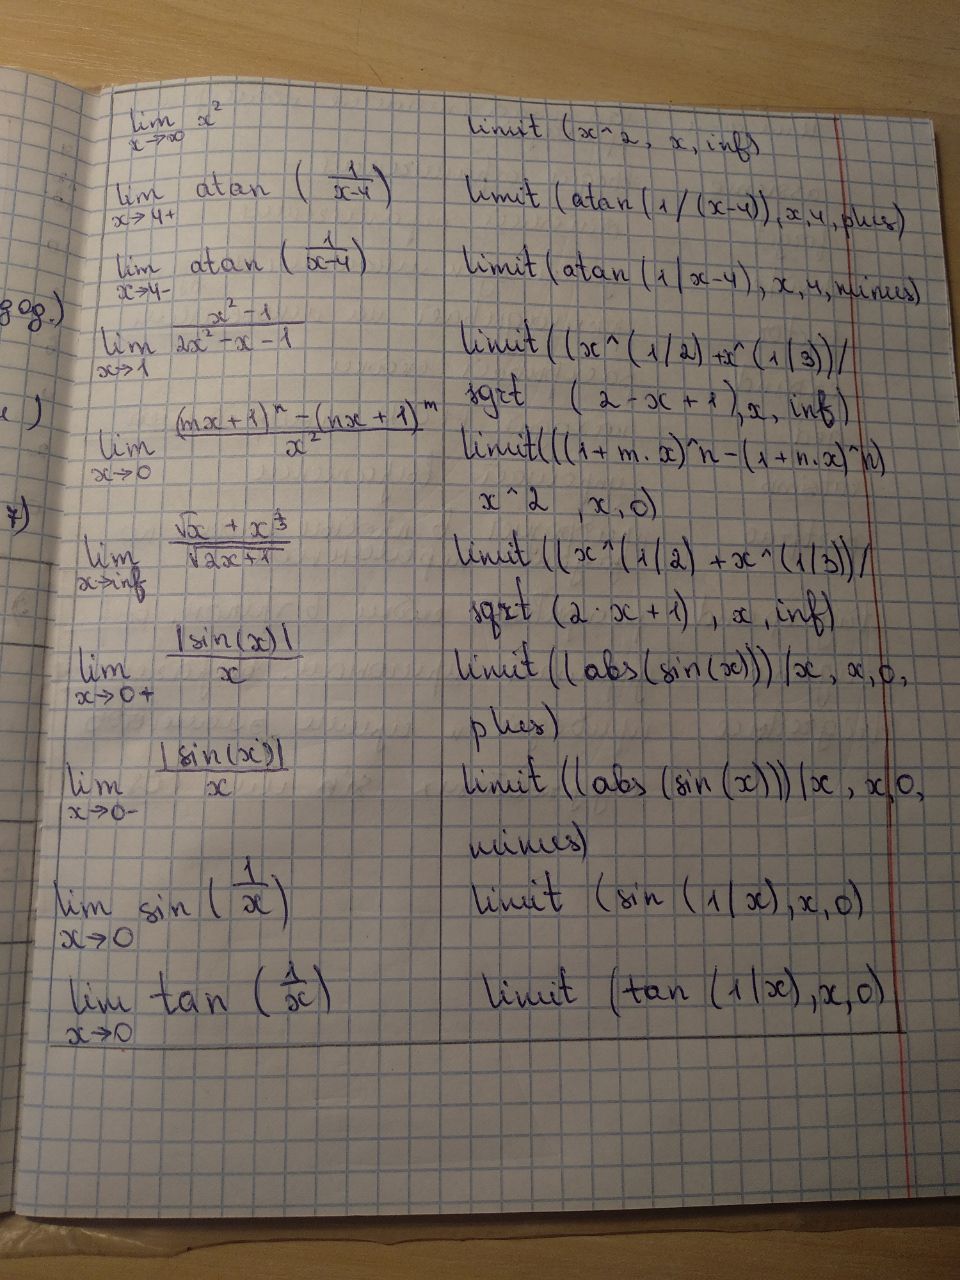 lim x→∞ x² limit (x^2, x, inf)
lim x→4+ atan (1/(x-4)) limit (atan (1/(x-4)), x, 4, plus)
lim x→4- atan (1/(x-4)) limit (atan (1/x-4), x, 4, minus)
год.)
lim x→1 (x²-1)/(2x²-x-1) limit ((x^(1/2)+x^(1/3))/
sqrt (2-x+1), x, inf)
)
lim x→0 ((mx+1)ⁿ-(nx+1)ᵐ)/x² limit(((1+m·x)^n-(1+n·x)^n)
x^2, x, 0)
7)
lim x→inf (√x + x^⅓)/√(2x+1) limit ((x^(1/2)+x^(1/3))/
sqrt (2·x+1), x, inf)
lim x→0+ |sin(x)|/x limit((abs(sin(x)))/x, x, 0,
plus)
lim x→0- |sin(x)|/x limit((abs (sin(x)))/x, x, 0,
minus)
lim x→0 sin (1/x) limit (sin (1/x), x, 0)
lim x→0 tan (1/x) limit (tan (1/x), x, 0)